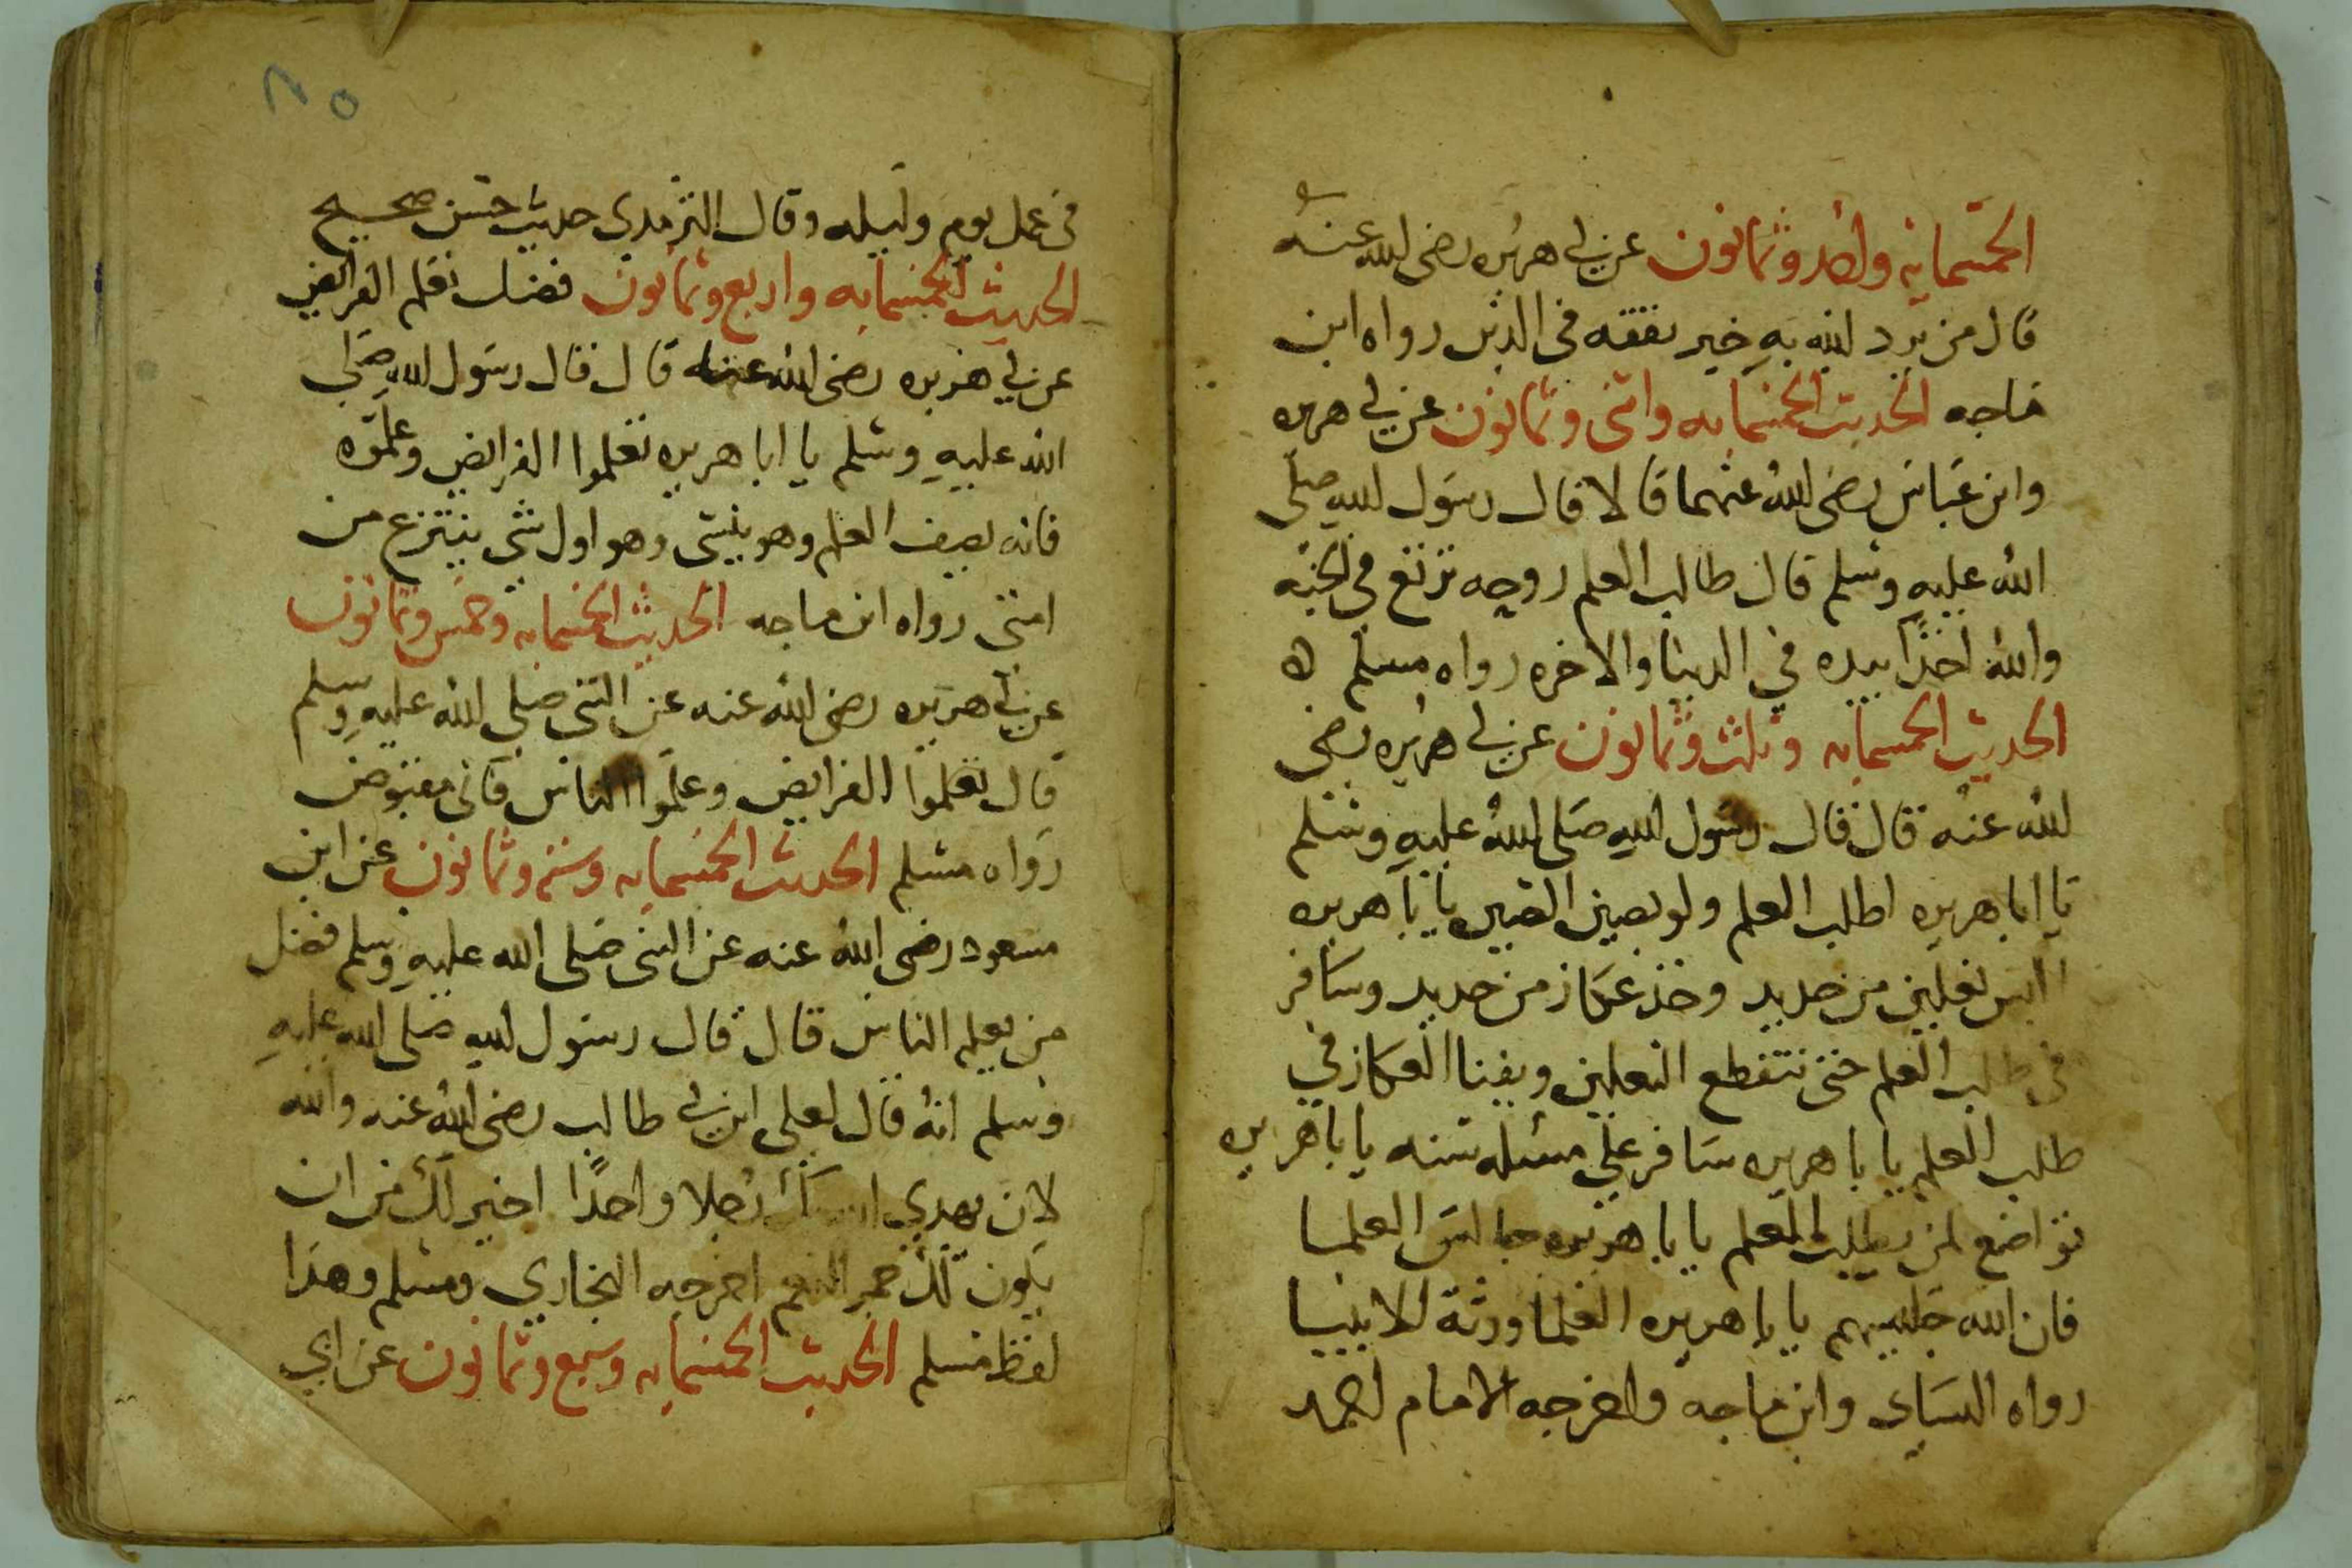 الخمسمايه واحد وثمانون عن ابي هريره رضي الله عنه
قال من يرد الله به خير يفقه في الدين رواه ابن
ماجه الحديث الخمسمايه واثنى وثمانون عن ابي هريره
وابن عباس رضي الله عنهما قالا قال رسول الله صلى
الله عليه وسلم قال طالب العلم روحه ترتع في الجنه
والله اخذا بيده في الدنيا والاخره رواه مسلم ه
الحديث الخمسمايه وثلث وثمانون عن ابي هريره رضي
الله عنه قال قال رسول الله صلى الله عليه وسلم
يا ابا هريره اطلب العلم ولو بصين الصين يا با هريره
البس نعلين من حديد وخذ عكاز من حديد وسافر
في طلب العلم حتى تتقطع النعلين ويفنا العكاز في
طلب العلم يا با هريره سافر على مسئله سنه يا با هريره
تواضع لمن يطلب العلم يا با هريره جالس العلما
فان الله جليسهم يا با هريره العلما ورثة للانبيا
رواه النساى وابن ماجه واخرجه الامام احمد
٨٥
في عمل يوم وليله وقال الترمدي حديث حسن صحيح
الحديث الخمسمايه واربع وثمانون فضل تعلم الفرائض
عن ابي هريره رضي الله عنه قال قال رسول الله صلى
الله عليه وسلم يا ابا هريره تعلموا الفرايض وعلموه
فانه نصف العلم وهو ينسى وهو اول شي ينتزع من
امتى رواه ابن ماجه الحديث الخمسمايه وخمس وثمانون
عن ابي هريره رضي الله عنه عن النبى صلى الله عليه وسلم
قال تعلموا الفرايض وعلموا الناس فانى مقبوض
رواه مسلم الحديث الخمسمايه وستة وثمانون عن ابن
مسعود رضى الله عنه عن النبى صلى الله عليه وسلم فضل
من يعلم الناس قال قال رسول الله صلى الله عليه
وسلم انه قال لعلى ابن ابي طالب رضى الله عنه والله
لان يهدي الله بك رجلا واحدًا اخير لك من ان
يكون لك حمر النعم اخرجه البخاري ومسلم وهذا
لفظ مسلم الحديث الخمسمايه وسبع وثمانون عن ابي